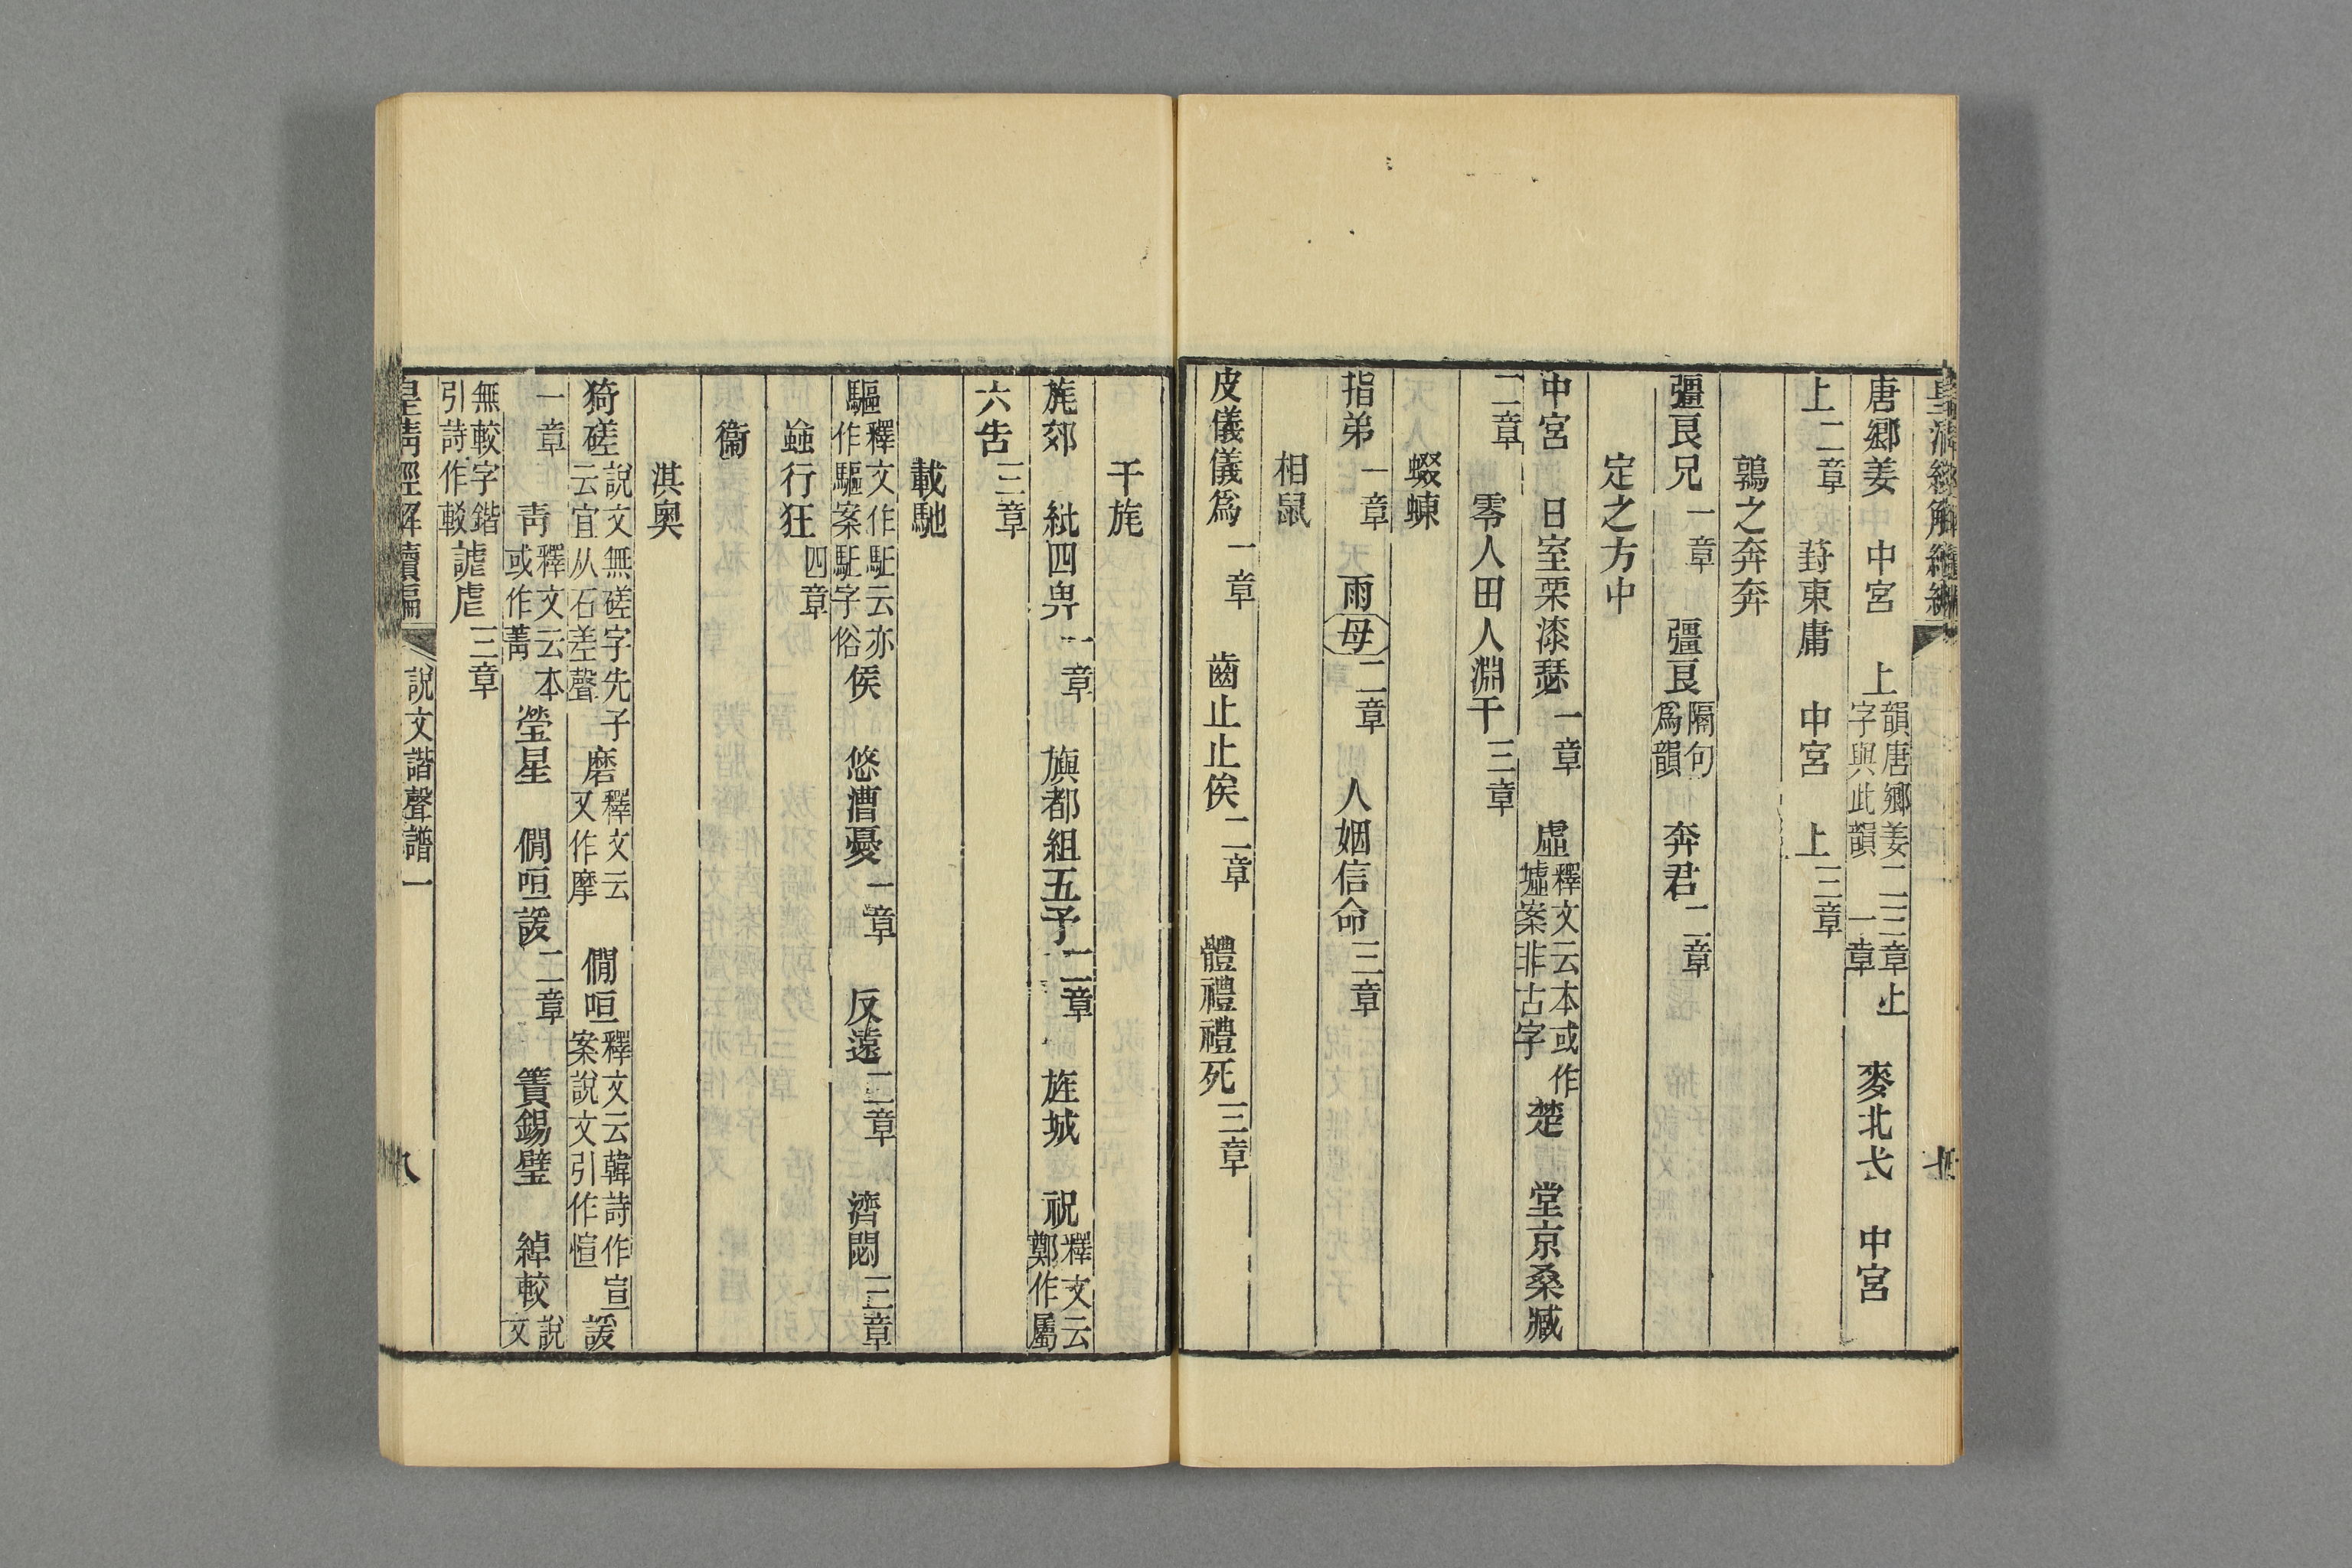 皇清經解續編
唐鄉姜　中宮　上韻唐鄉姜二三章止字與此韻一章　麥北弋　中宮
上二章　葑東庸　中宮　上三章
鶉之奔奔
彊良兄一章　彊良隔句爲韻　奔君二章
定之方中
中宮　日室栗漆瑟一章　虛釋文云本或作墟案非古字　楚　堂京桑臧
二章　零人田人淵千三章
蝃蝀
指弟一章　雨母二章　人姻信命三章
相鼠
皮儀儀爲一章　齒止止俟二章　體禮禮死三章
干旄
旄郊　紕四畀一章　旟都組五予二章　旌城　祝釋文云鄭作屬
六告三章
載馳
驅釋文作駈云亦作驅案駈字俗侯　悠漕憂一章　反遠二章　濟閟三章
蝱行狂四章
衞
淇奧
猗磋說文無磋字先子云宜从石差聲磨釋文云又作摩　僩咺釋文云韓詩作宣案說文引作愃諼
一章　靑釋文云本或作菁瑩星　僩咺諼二章　簀錫璧　綽較說文
無較字鍇引詩作較謔虐三章
皇淸經解續編　說文諧聲譜一　八